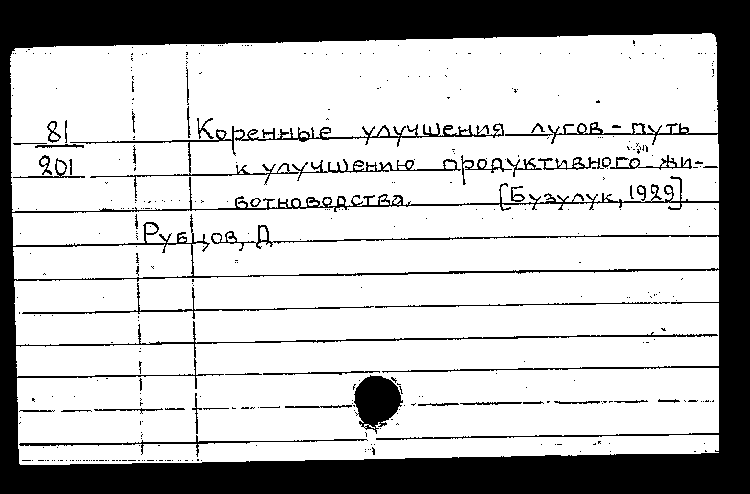 81
201
Коренные улучшения лугов - путь
к улучшению продуктивного жи-
вотноводства. [Бузулук, 1929].
Рубцов, Д.